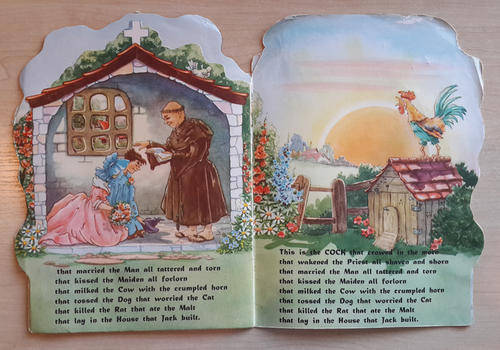 that married the Man all tattered and torn
that kissed the Maiden all forlorn
that milked the Cow with the crumpled horn
that tossed the Dog that worried the Cat
that killed the Rat that ate the Malt
that lay in the House that Jack built.
This is the COCK that crowed in the morn
that wakened the Priest all shaven and shorn
that married the Man all tattered and torn
that kissed the Maiden all forlorn
that milked the Cow with the crumpled horn
that tossed the Dog that worried the Cat
that killed the Rat that ate the Malt
that lay in the House that Jack built.